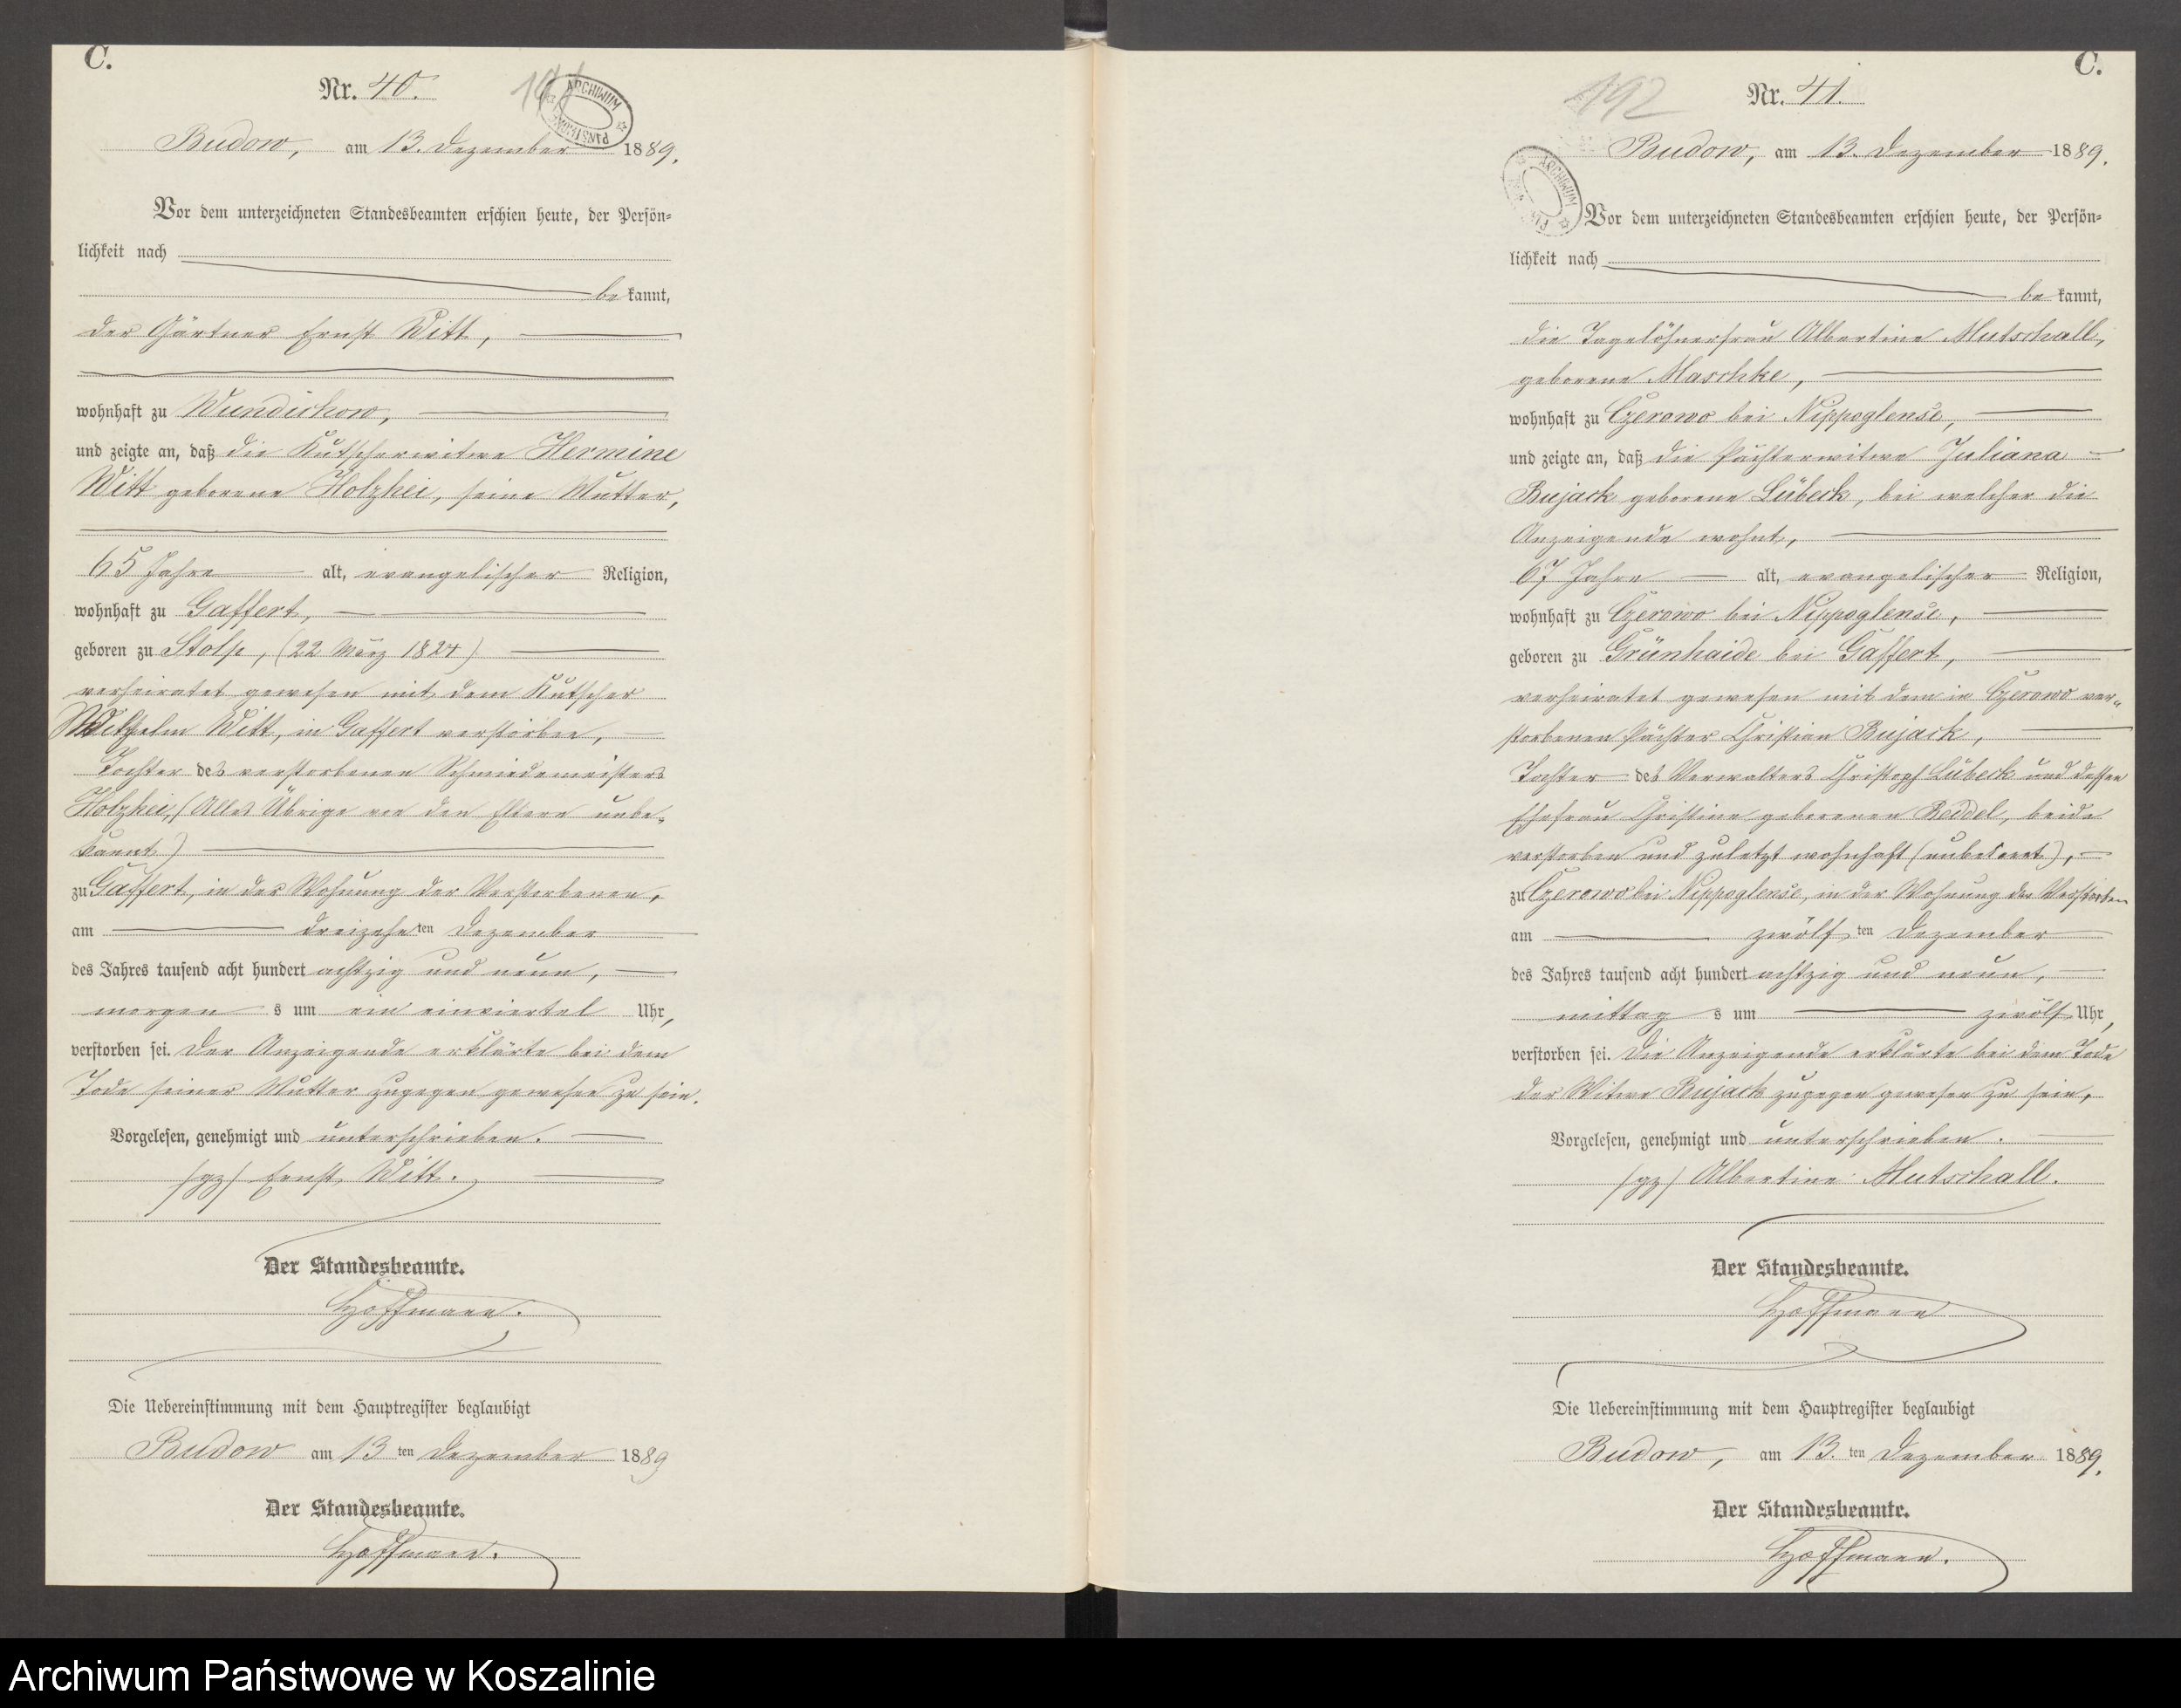 C.
Nr. 40.
191
ARCHIWUM PAŃSTWOWE
Budow, am 13. Dezember 1889.
Vor dem unterzeichneten Standesbeamten erschien heute, der Persön=
lichkeit nach
be kannt,
der Gärtner Ernst Witt,
wohnhaft zu Wundichow,
und zeigte an, daß die Kutscherwitwe Hermine
Witt geborene Holzhei, seine Mutter,
65 Jahre alt, evangelischer Religion,
wohnhaft zu Gaffert,
geboren zu Stolp, (22 März 1824)
verheiratet gewesen mit dem Kutscher
Wilhelm Witt, in Gaffert verstorben,
Tochter des verstorbenen Schmiedemeisters
Holzhei, (Alles Übrige von den Eltern unbe=
kannt)
zu Gaffert, in der Wohnung der Verstorbenen,
am dreizehnten Dezember
des Jahres tausend acht hundert achtzig und neun,
morgen s um ein einviertel Uhr,
verstorben sei. Der Anzeigende erklärte bei dem
Tode seiner Mutter zugegen gewesen zu sein.
Vorgelesen, genehmigt und unterschrieben.
/gz/ Ernst Witt.
Der Standesbeamte.
Hoffmann.
Die Uebereinstimmung mit dem Hauptregister beglaubigt
Budow am 13 ten Dezember 1889
Der Standesbeamte.
Hoffmann.
C.
192
Nr. 41.
Budow, am 13. Dezember 1889.
ARCHIWUM
Vor dem unterzeichneten Standesbeamten erschien heute, der Persön=
lichkeit nach
be kannt,
die Tagelöhnerfrau Albertine Mutschall,
geborene Maschke,
wohnhaft zu Czerowo bei Nippoglense,
und zeigte an, daß die Pächterwitwe Juliana
Bujack geborene Lübeck, bei welcher die
Anzeigende wohnt,
67 Jahre alt, evangelischer Religion,
wohnhaft zu Czerowo bei Nippoglense,
geboren zu Grünhaide bei Gaffert,
verheiratet gewesen mit dem in Czerowo ver=
storbenen Pächter Christian Bujack,
Tochter des Verwalters Christoph Lübeck und dessen
Ehefrau Christine geborenen Reddel, beide
verstorben und zuletzt wohnhaft (unbekannt),
zu Czerowo bei Nippoglense, in der Wohnung der Verstorben
am zwölf ten Dezember
des Jahres tausend acht hundert achtzig und neun,
mittag s um zwölf Uhr,
verstorben sei. Die Anzeigende erklärte bei dem Tode
der Witwe Bujack zugegen gewesen zu sein.
Vorgelesen, genehmigt und unterschrieben.
/gz/ Albertine Mutschall.
Der Standesbeamte.
Hoffmann
Die Uebereinstimmung mit dem Hauptregister beglaubigt
Budow, am 13. ten Dezember 1889.
Der Standesbeamte.
Hoffmann.
Archiwum Państwowe w Koszalinie